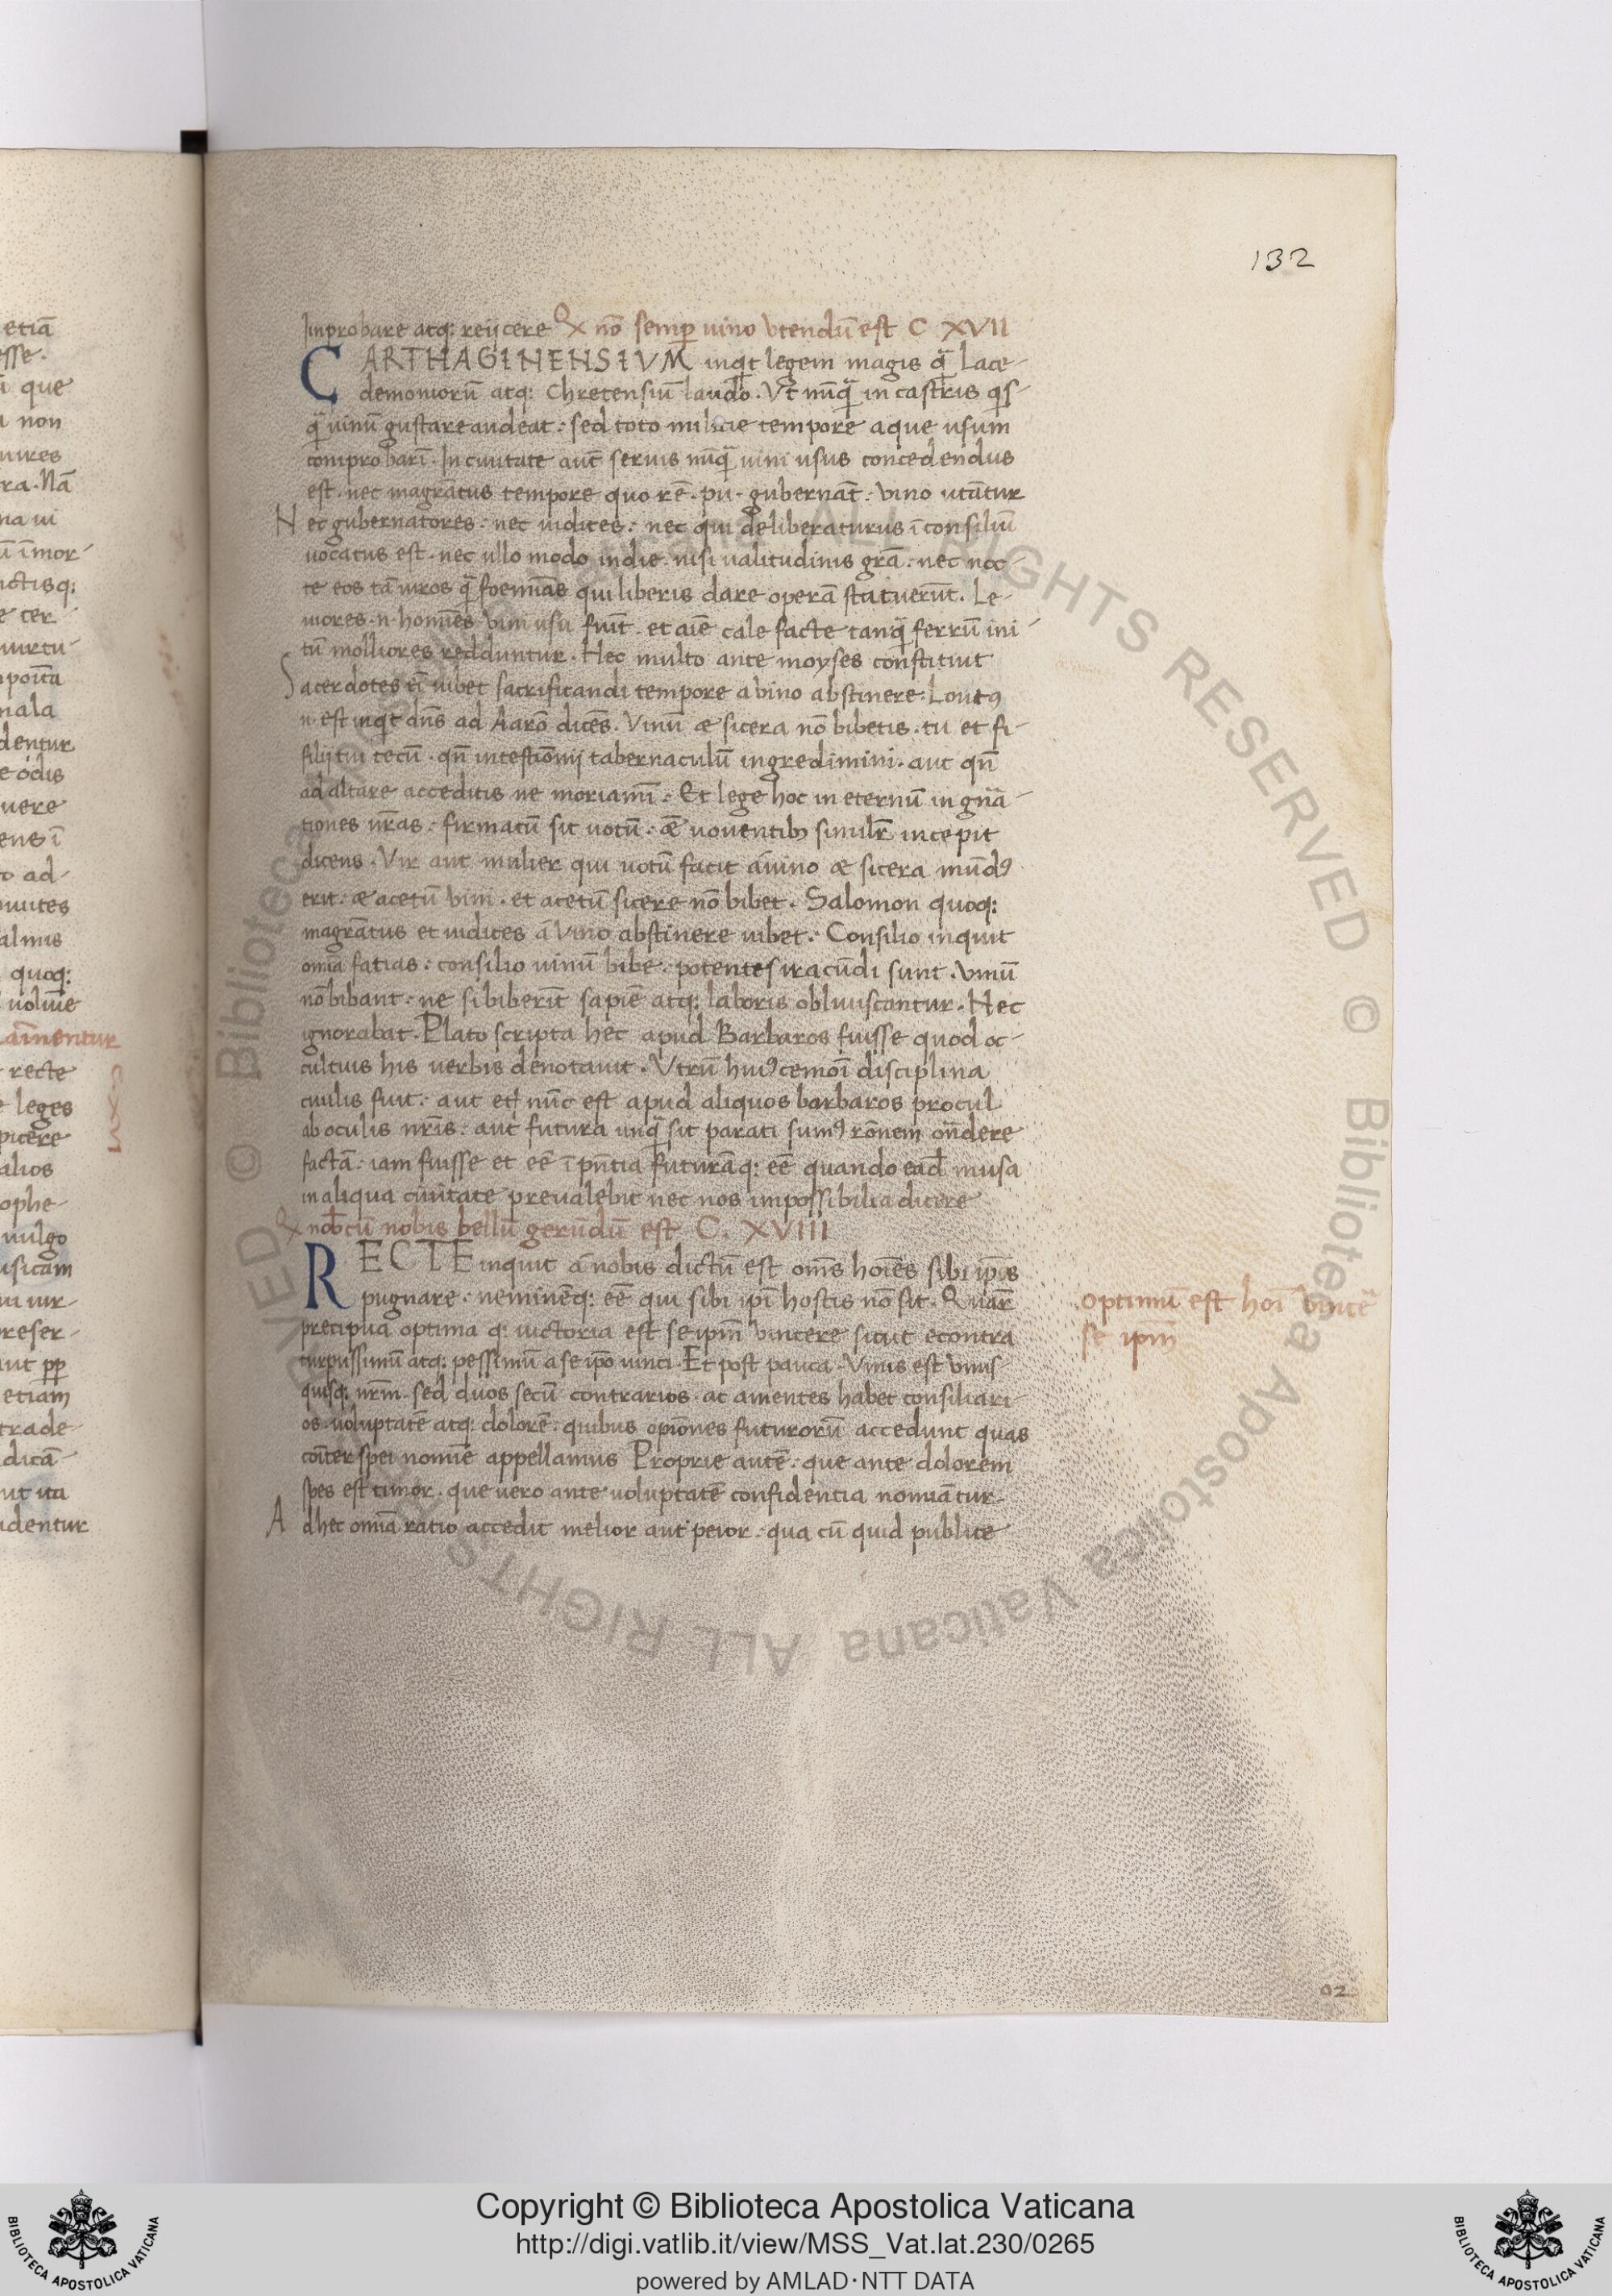 132
etiā
esse.
ī que
a non
uires
ra. Nā
na ui
ū īmor-
nctisq;
e ter-
uirtu-
nala
dentur
e odis
uere
ens ī
o ad-
almis
quoq;
uoluīe
amentur
recte
C XVI
leges
picere
alios
ophe-
uulgo
usicam
ui uir-
reser-
etiam
trade-
dicā-
ut ita
identur
Improbare atq; reijcere Qx nō semp uino utendū est C XVII
CARTHAGINENSIVM inqt legem magis q̄ Lace-
demoniorū atq; Chretensiū laudo. Vt nūq̄ in castris qs-
q̄ uinū gustare audeat: sed toto milicie tempore aque usum
comprobari. In ciuitate aut seruis nūq̄ uini usus concedendus
est. nec magrātus tempore quo rē. pu. gubernāt: uino utātur
Nec gubernatores: nec iudices: nec qui deliberaturus ī consiliū
uocatus est. nec ullo modo in die. nisi ualitudinis grā: nec noc-
te eos tā uiros q̄ foeminas qui liberis dare operā statuerūt. Le-
uiores .n. homīes uini usu fiūt. et aīe calefacte tanq̄ ferrū ini-
tū molliores redduntur. Hec multo ante moyses constituit
Sacerdotes ēī iubet sacrificandi tempore a uino abstinere. Locutꝯ
.n. est inqt dn̄s ad Aarō dicēs. Vinū & sicera nō bibetis. tu et fi-
filij tui tecū. qn̄ in testīonij tabernaculū ingredimini. aut qn̄
ad altare acceditis ne moriamī. Et lege hoc in eternū in gn̄a-
tiones ur̄as: firmatū sit uotū.
dicens. Vir aut mulier qui uotū facit a uino & sicera mūdꝯ
erit. & acetū uini. et acetū sicere nō bibet. Salomon quoq;
magrātus et iudices á uino abstinere iubet. Consilio inquit
omīa fatias: consilio uinū bibe. potentes iracūdi sunt. uinū
nō bibant: ne si biberīt sapiē atq; laboris obliuiscantur. Hec
ignorabat. Plato scripta hec apud Barbaros fuisse quod oc-
cultius his uerbis denotauit. Vtrū huiꝯcemoī disciplina
ciuilis fuit: aut etī nūc est apud aliquos barbaros procul
ab oculis nr̄is: aut futura unq̄ sit parati sumꝯ rōnem on̄dere
factā: iam fuisse et eē ī pn̄tia futurāq; eē quando ead̄ musa
in aliqua ciuitate preualebit nec nos impossibilia dicere
Qx nob cū nobis bellū gerūdū est C. XVIII
RECTE inquit á nobis dictū est omīs hoīes sibi ipis
pugnare. neminēq; eē qui sibi ipī hostis nō sit. Quar̄
precipua optima q; uictoria est seipm̄ uincere sicut econtra
turpissimū atq; pessimū a se ipō uinci. Et post pauca. Vnus est unus-
quisq; nr̄m. sed duos secū contrarios ac amentes habet consiliari-
os. uoluptatē atq; dolorē. quibus opiōnes futurorū accedunt quas
cōiter spei nomīe appellamus Proprie autē. que ante dolorem
spes est timor. que uero ante uoluptatē confidentia nomīatur.
Ad hec omīa ratio accedit melior aut peior. qua cū quid publice
optimū est hoī uincē
se ipm̄
02
© Biblioteca Apostolica Vaticana ALL RIGHTS RESERVED
Copyright © Biblioteca Apostolica Vaticana
http://digi.vatlib.it/view/MSS_Vat.lat.230/0265
powered by AMLAD·NTT DATA
BIBLIOTECA APOSTOLICA VATICANA
BIBLIOTECA APOSTOLICA VATICANA